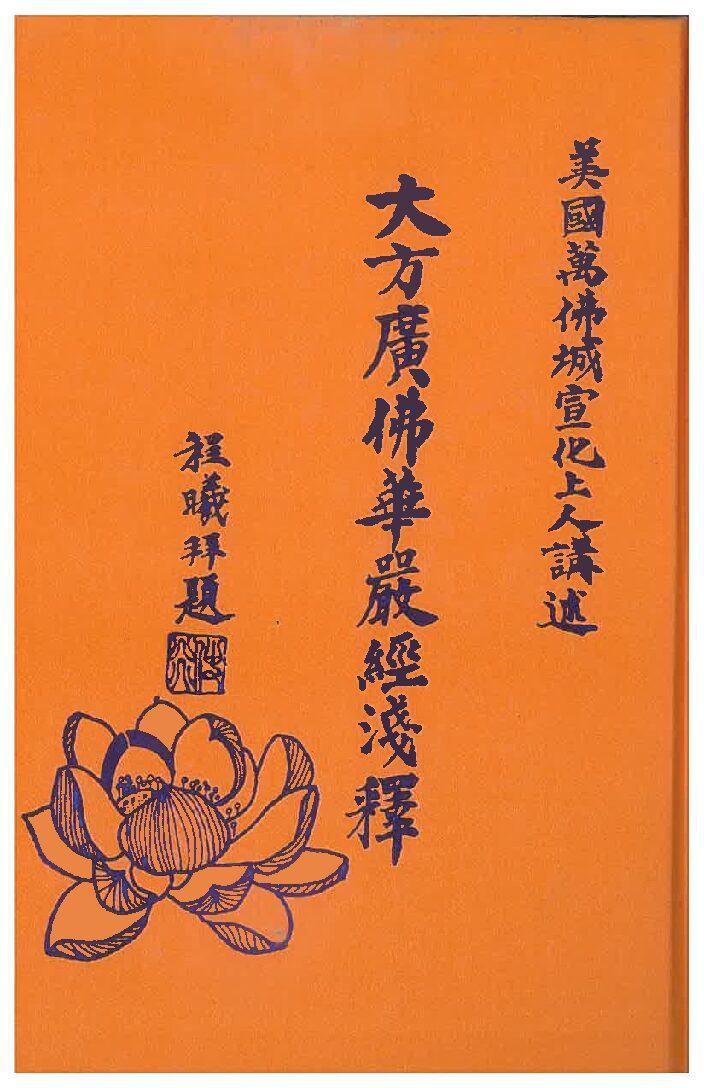 美國萬佛城宣化上人講述
大方廣佛華嚴經淺釋
程曦拜題